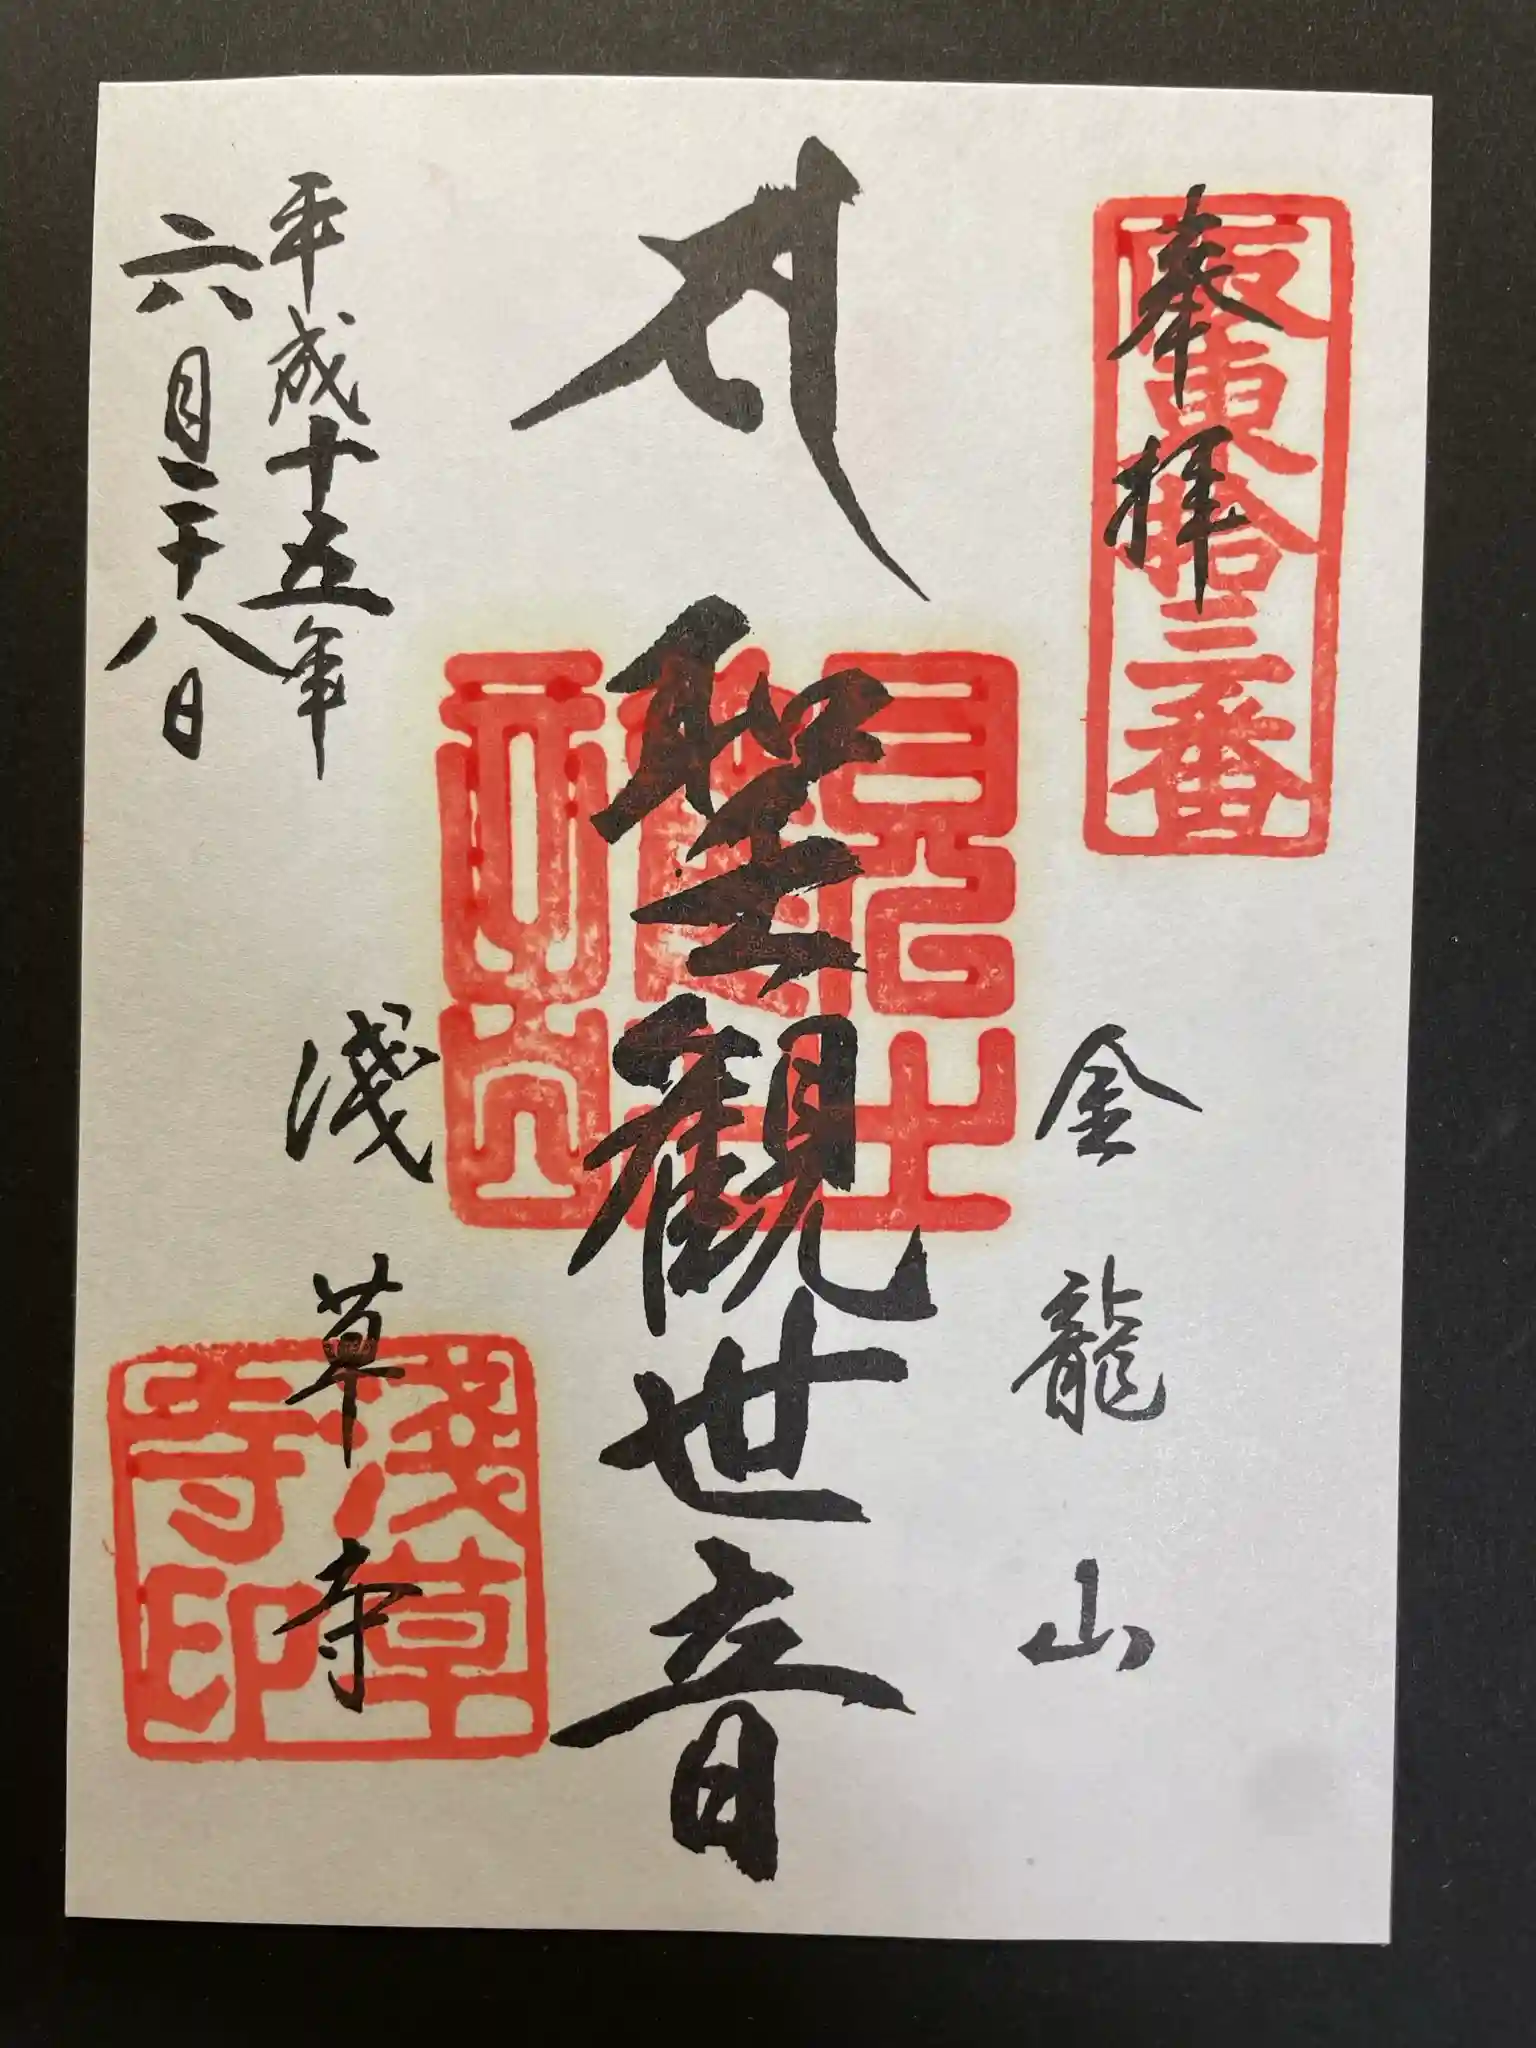 奉拝
坂東拾三番
金龍山
聖観世音
浅草寺
淺草寺印
平成十五年
六月二十八日